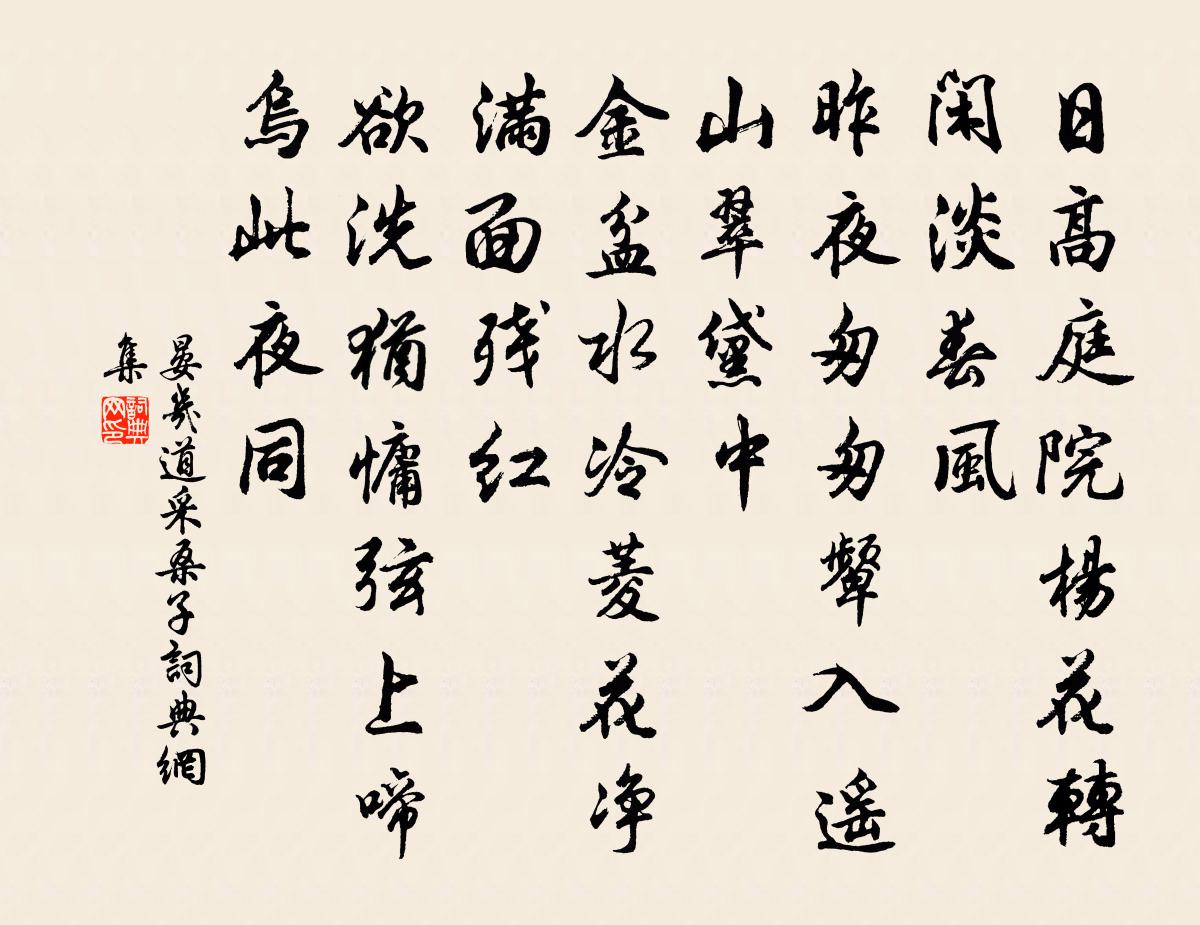 日高庭院楊花轉
閑淡春風
昨夜匆匆顰入遥
山翠黛中
金盆水冷菱花净
满面残红
欲洗猶慵弦上啼
烏此夜同
晏幾道采桑子詞典網
集
詞典
网印